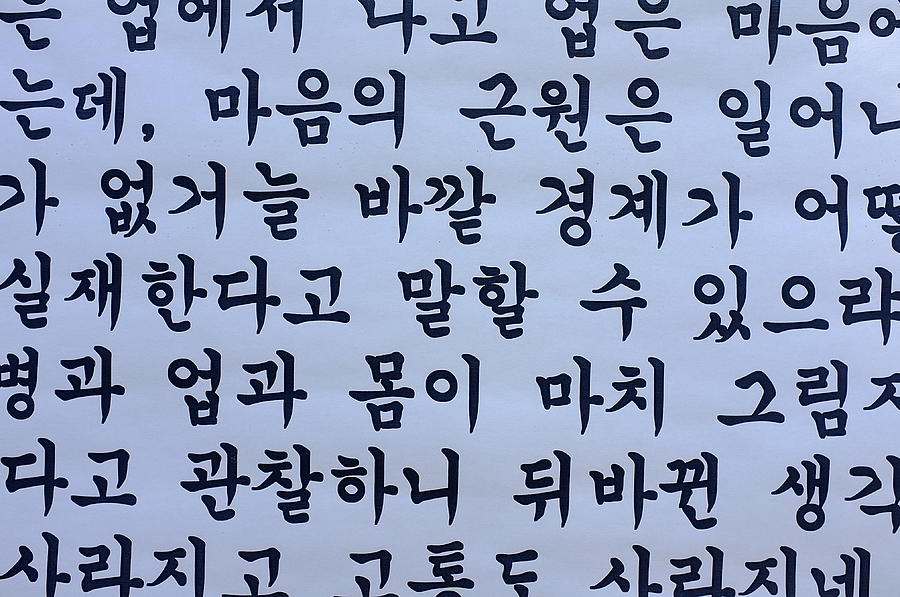 는 업에서 나고 업은 마음에
는데, 마음의 근원은 일어나
가 없거늘 바깥 경계가 어떻
실재한다고 말할 수 있으랴
병과 업과 몸이 마치 그림자
다고 관찰하니 뒤바뀐 생각
사라지고 고통도 사라지네